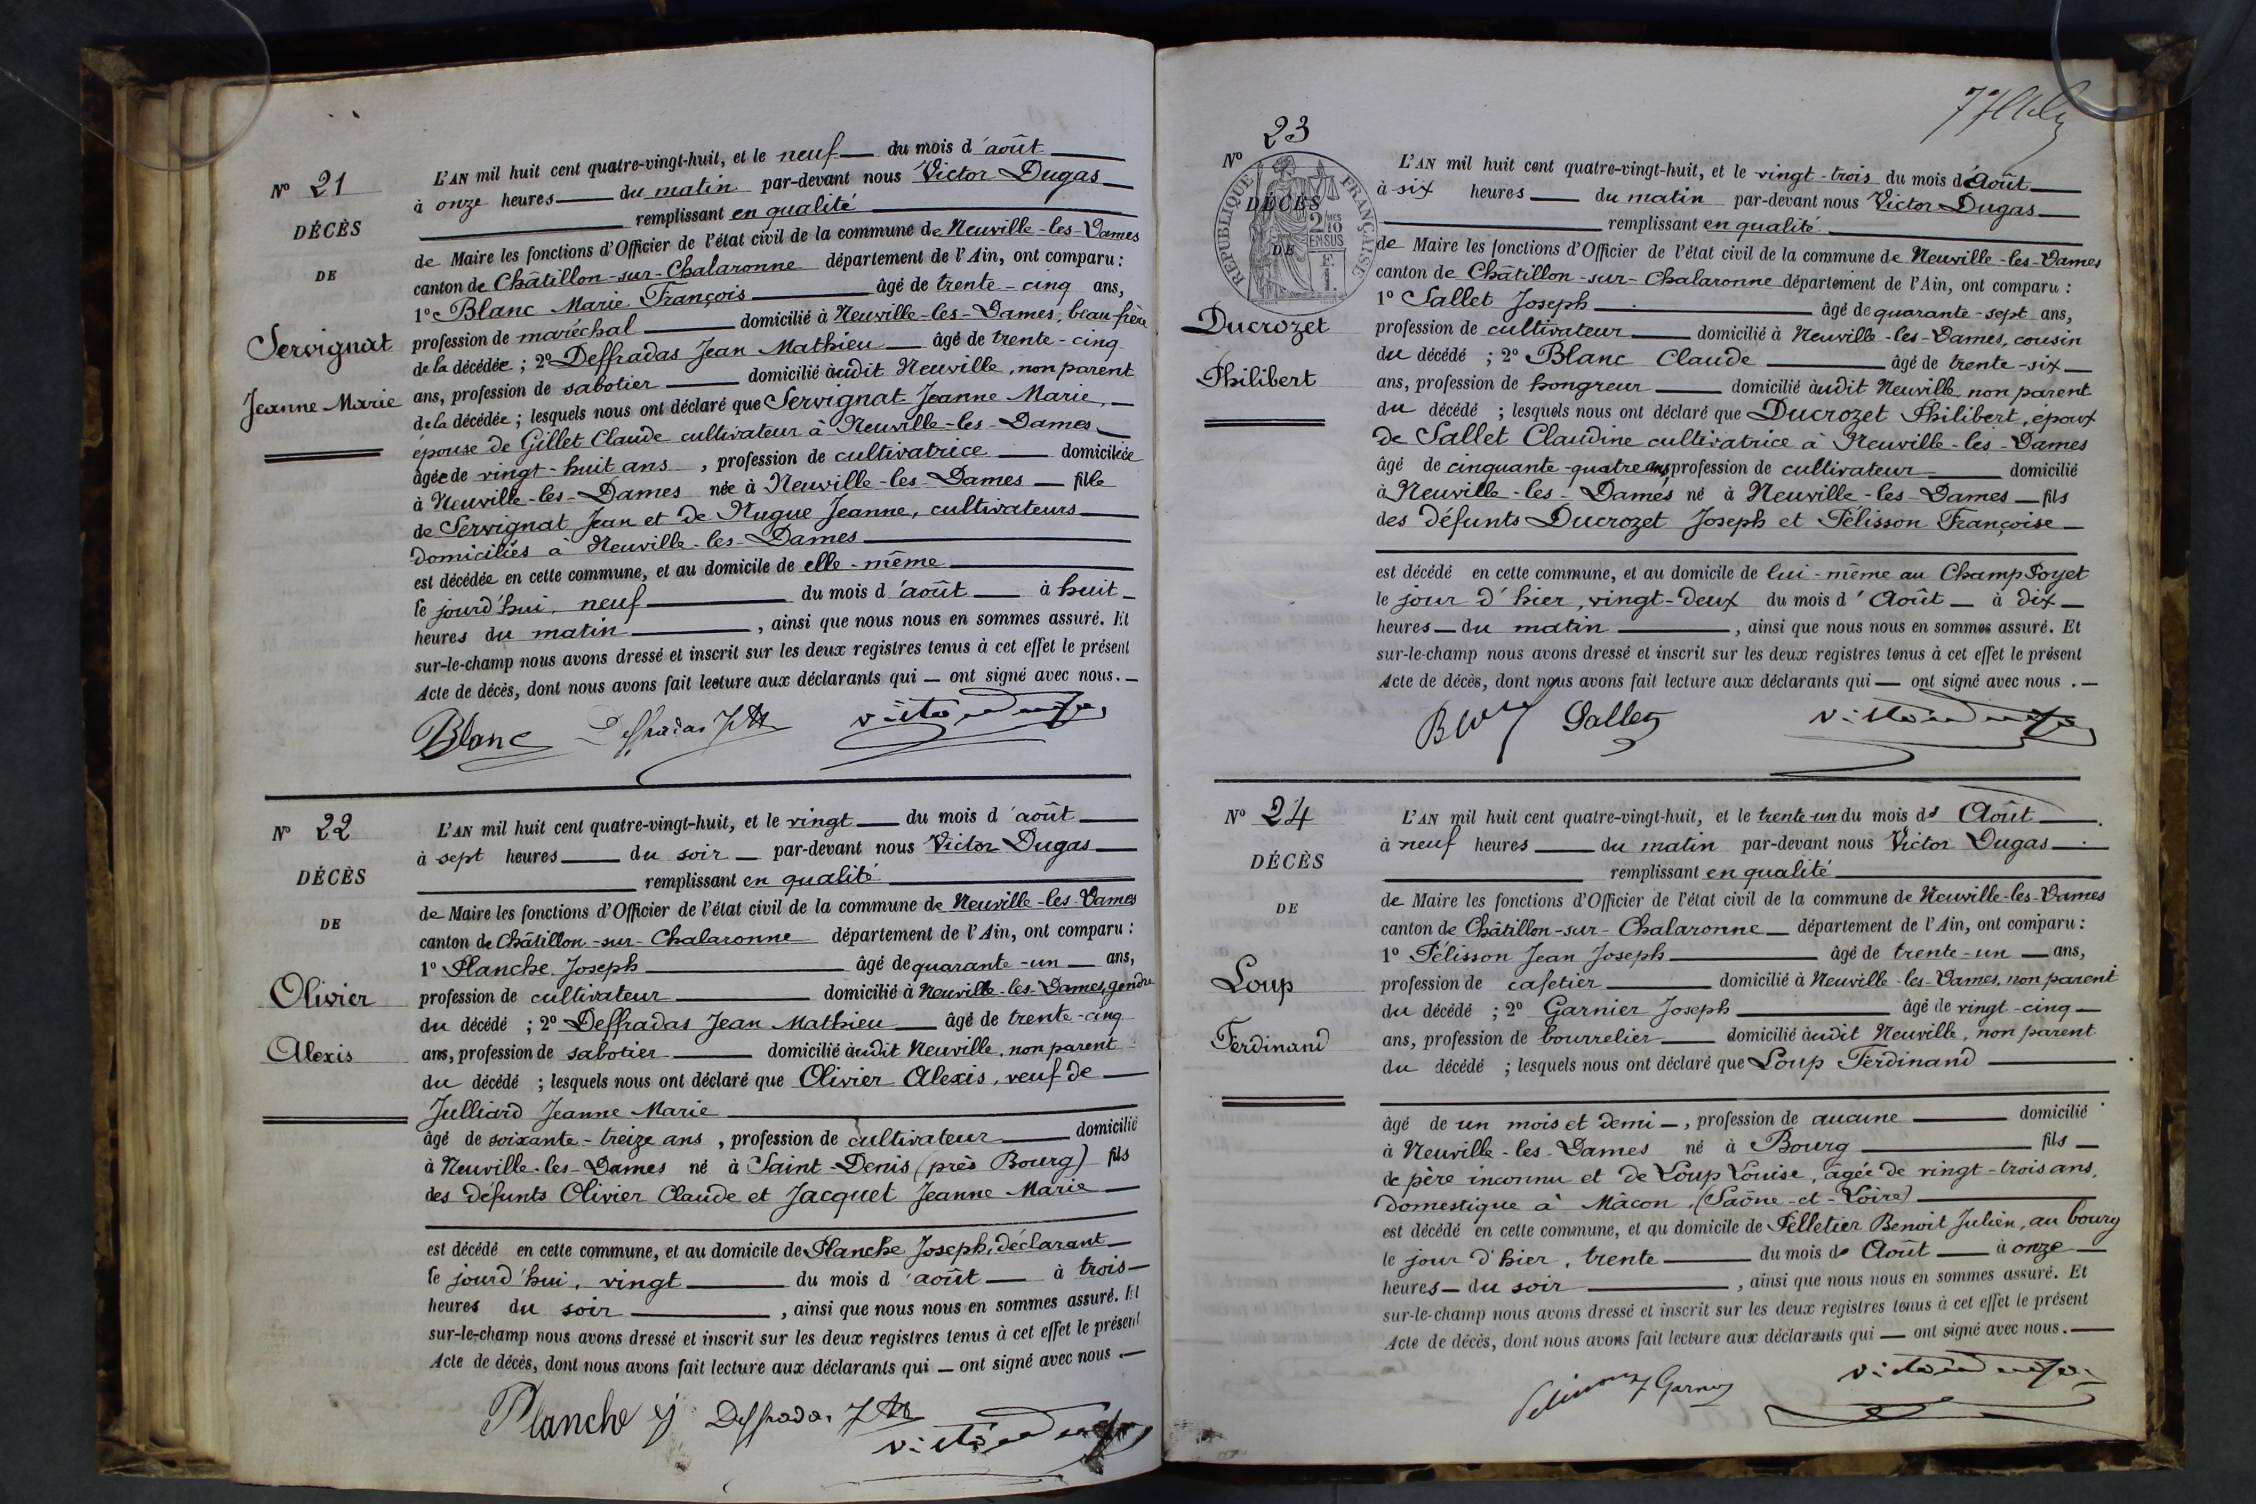 Nº 21
DÉCÈS
DE
Servignat
Jeanne Marie
L'AN mil huit cent quatre-vingt-huit, et le neuf du mois d'août
à onze heures du matin par-devant nous Victor Dugas
remplissant en qualité
de Maire les fonctions d'Officier de l'état civil de la commune de Neuville-les-Dames
canton de Châtillon-sur-Chalaronne département de l'Ain, ont comparu :
1º Blanc Marie François âgé de trente-cinq ans,
profession de maréchal domicilié à Neuville-les-Dames, beau-frère
de la décédée ; 2º Deffradas Jean Mathieu âgé de trente-cinq
ans, profession de sabotier domicilié audit Neuville, non parent
de la décédée ; lesquels nous ont déclaré que Servignat Jeanne Marie,
épouse de Gillet Claude cultivateur à Neuville-les-Dames
âgée de vingt-huit ans, profession de cultivatrice domiciliée
à Neuville-les-Dames née à Neuville-les-Dames fille
de Servignat Jean et de Nugue Jeanne, cultivateurs
domiciliés à Neuville-les-Dames
est décédée en cette commune, et au domicile de elle-même
le jourd'hui, neuf du mois d'août à huit
heures du matin, ainsi que nous nous en sommes assuré. Et
sur-le-champ nous avons dressé et inscrit sur les deux registres tenus à cet effet le présent
Acte de décès, dont nous avons fait lecture aux déclarants qui ont signé avec nous.
Blanc Deffradas Victor Dugas
Nº 22
DÉCÈS
DE
Olivier
Alexis
L'AN mil huit cent quatre-vingt-huit, et le vingt du mois d'août
à sept heures du soir par-devant nous Victor Dugas
remplissant en qualité
de Maire les fonctions d'Officier de l'état civil de la commune de Neuville-les-Dames
canton de Châtillon-sur-Chalaronne département de l'Ain, ont comparu :
1º Planche Joseph âgé de quarante-un ans,
profession de cultivateur domicilié à Neuville-les-Dames, gendre
du décédé ; 2º Deffradas Jean Mathieu âgé de trente-cinq
ans, profession de sabotier domicilié audit Neuville, non parent
du décédé ; lesquels nous ont déclaré que Olivier Alexis, veuf de
Julliard Jeanne Marie
âgé de soixante-treize ans, profession de cultivateur domicilié
à Neuville-les-Dames né à Saint-Denis (près Bourg) fils
des défunts Olivier Claude et Jacquet Jeanne Marie
est décédé en cette commune, et au domicile de Planche Joseph, déclarant
le jourd'hui, vingt du mois d'août à trois
heures du soir, ainsi que nous nous en sommes assuré. Et
sur-le-champ nous avons dressé et inscrit sur les deux registres tenus à cet effet le présent
Acte de décès, dont nous avons fait lecture aux déclarants qui ont signé avec nous.
Planche j Deffradas Victor Dugas
Nº 23
RÉPUBLIQUE FRANÇAISE
2/10 MES
EN SUS
F.
1.
DÉCÈS
DE
Ducrozet
Philibert
L'AN mil huit cent quatre-vingt-huit, et le vingt-trois du mois d'Août
à six heures du matin par-devant nous Victor Dugas
remplissant en qualité
de Maire les fonctions d'Officier de l'état civil de la commune de Neuville-les-Dames
canton de Châtillon-sur-Chalaronne département de l'Ain, ont comparu :
1º Sallet Joseph âgé de quarante-sept ans,
profession de cultivateur domicilié à Neuville-les-Dames, cousin
du décédé ; 2º Blanc Claude âgé de trente-six
ans, profession de hongreur domicilié audit Neuville non parent
du décédé ; lesquels nous ont déclaré que Ducrozet Philibert, époux
de Sallet Claudine cultivatrice à Neuville-les-Dames
âgé de cinquante-quatre ans, profession de cultivateur domicilié
à Neuville-les-Dames né à Neuville-les-Dames fils
des défunts Ducrozet Joseph et Pélisson Françoise
est décédé en cette commune, et au domicile de lui-même au Champ Poyet
le jour d'hier, vingt-deux du mois d'Août à dix
heures du matin, ainsi que nous nous en sommes assuré. Et
sur-le-champ nous avons dressé et inscrit sur les deux registres tenus à cet effet le présent
Acte de décès, dont nous avons fait lecture aux déclarants qui ont signé avec nous.
Sallet Victor Dugas
Nº 24
DÉCÈS
DE
Loup
Ferdinand
L'AN mil huit cent quatre-vingt-huit, et le trente-un du mois d' Août
à neuf heures du matin par-devant nous Victor Dugas
remplissant en qualité
de Maire les fonctions d'Officier de l'état civil de la commune de Neuville-les-Dames
canton de Châtillon-sur-Chalaronne département de l'Ain, ont comparu :
1º Pélisson Jean Joseph âgé de trente-un ans,
profession de cafetier domicilié à Neuville-les-Dames, non parent
du décédé ; 2º Garnier Joseph âgé de vingt-cinq
ans, profession de bourrelier domicilié audit Neuville, non parent
du décédé ; lesquels nous ont déclaré que Loup Ferdinand
âgé de un mois et demi, profession de aucune domicilié
à Neuville-les-Dames né à Bourg fils
de père inconnu et de Loup Louise, âgée de vingt-trois ans,
domestique à Mâcon, (Saône-et-Loire)
est décédé en cette commune, et au domicile de Pelletier Benoit Julien, au bourg
le jour d'hier, trente du mois d' Août à onze
heures du soir, ainsi que nous nous en sommes assuré. Et
sur-le-champ nous avons dressé et inscrit sur les deux registres tenus à cet effet le présent
Acte de décès, dont nous avons fait lecture aux déclarants qui ont signé avec nous.
Victor Dugas